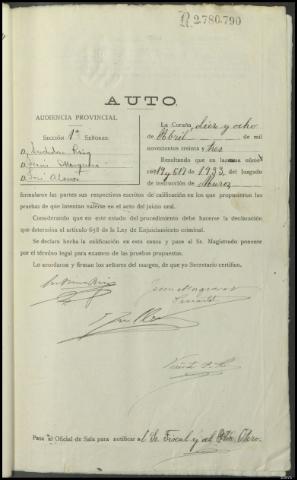 2.780.790
AUTO.
AUDIENCIA PROVINCIAL
SECCIÓN 1ª SEÑORES:
La Coruña, diez y ocho
de Abril, de mil
novecientos treinta y tres
Resultando que en la causa núme-
ro 19 de 1933, del Juzgado
de instrucción de Muros
formularon las partes sus respectivos escritos de calificación en los que propusieron las
pruebas de que intentan valerse en el acto del juicio oral.
Considerando que en este estado del procedimiento debe hacerse la declaración
que determina el artículo 658 de la Ley de Enjuiciamiento criminal.
Se declara hecha la calificación en esta causa y pase al Sr. Magistrado ponente
por el término legal para examen de las pruebas propuestas.
Lo acordaron y firman los señores del margen, de que yo Secretario certifico.
Pasa al Oficial de Sala para notificar al Sr. Fiscal y al Otero.